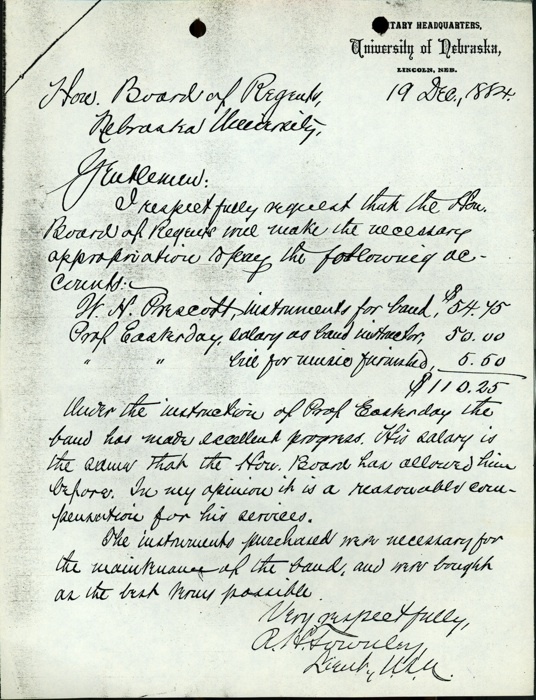 ITARY HEADQUARTERS,
University of Nebraska,
LINCOLN, NEB.
19 Dec., 1884.
Hon. Board of Regents,
Nebraska University,
Gentlemen:
I respectfully request that the Hon.
Board of Regents will make the necessary
appropriation to pay the following ac-
counts:
W. N. Prescott, instruments for band, $54.75
Prof Easterday, salary as band instructor, 50.00
" " bill for music furnished, 5.50
$110.25
Under the instruction of Prof Easterday the
band has made excellent progress. His salary is
the same that the Hon. Board has allowed him
before. In my opinion it is a reasonable com-
pensation for his services.
The instruments purchased were necessary for
the maintenance of the band, and were bought
on the best terms possible.
Very respectfully,
Townley
Lieut., U.S.A.